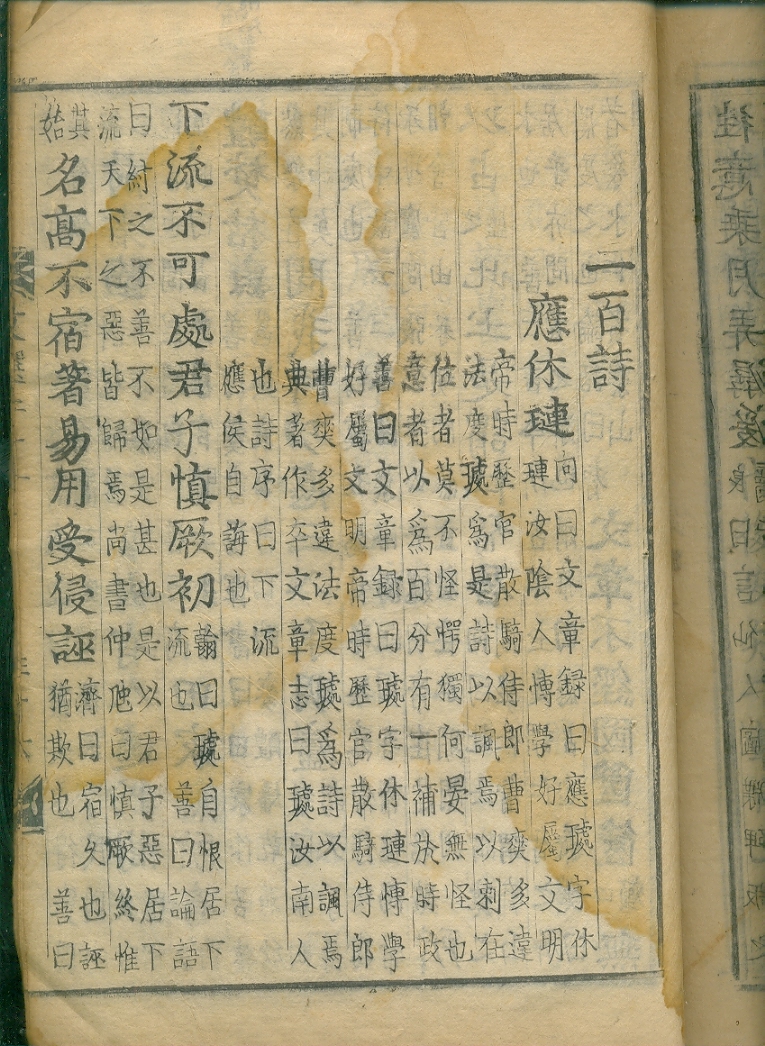 二百詩
應休璉
向曰文章録曰應璩字休
璉汝陰人博學好屬文明
帝時歷官散騎侍郎曹爽多違
法度璩爲是詩以諷焉以刺在
位者莫不怪愕獨何晏無怪也
意者以爲百分有一補於時政
善曰文章録曰璩字休璉博學
好屬文明帝時歷官散騎侍郎
曹爽多違法度璩爲詩以諷焉
典著作卒文章志曰璩汝南人
也詩序曰下流
應侯自誨也
下流不可處君子慎厥初
翰曰璩自恨居下
流也 善曰論語
曰紂之不善不如是甚也是以君子惡居下
流天下之惡皆歸焉尚書仲虺曰慎厥終惟
其
始
名高不宿著易用受侵誣
濟曰宿久也誣
猶欺也 善曰